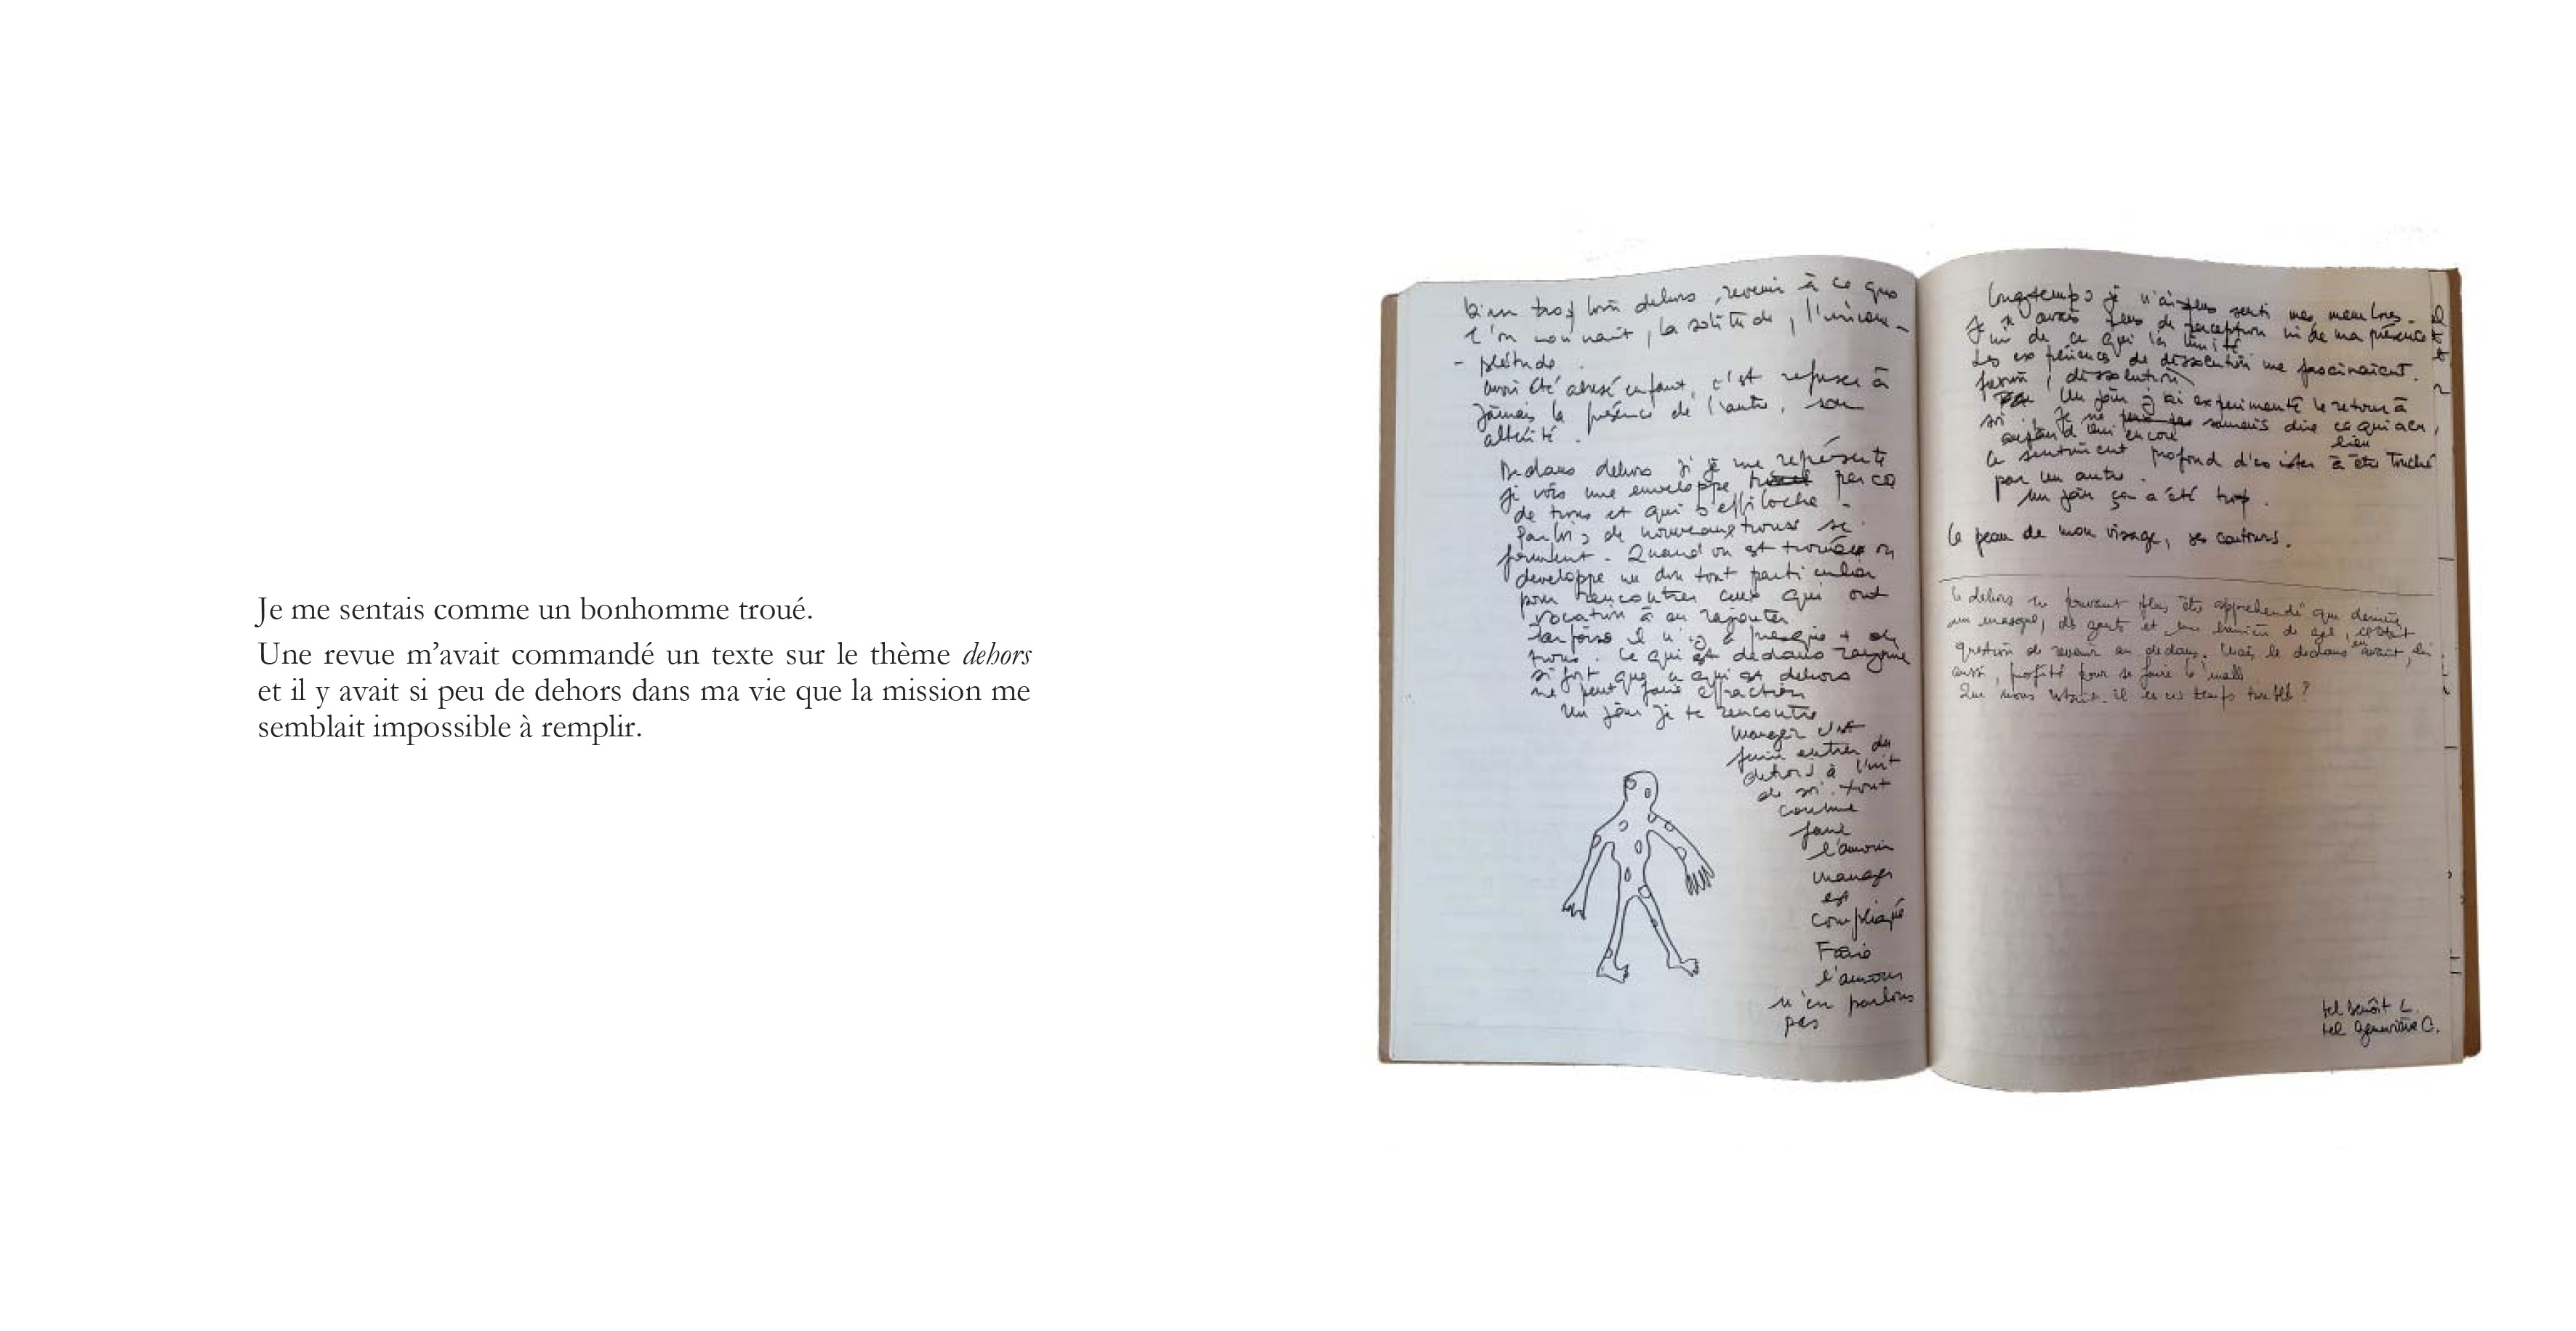 Je me sentais comme un bonhomme troué.
Une revue m’avait commandé un texte sur le thème dehors
et il y avait si peu de dehors dans ma vie que la mission me
semblait impossible à remplir.
bien trop loin dehors, revenir à ce que
l'on connaît, la solitude, l'incom-
- plétude
avoir été abusé enfant, c'est refuser à
jamais la présence de l'autre, son
altérité.
Dedans dehors si je me représente
je vois une enveloppe percée
de trous et qui s'effiloche -
Parfois de nouveaux trous se
forment - Quand on est on
développe un don tout particulier
pour rencontrer ceux qui ont
vocation à en rajouter
Parfois il n'y a presque + de
trous. Ce qui est dedans
si fort que ce qui est dehors
ne peut faire effraction
Un jour je te rencontre
Manger c'est
faire entrer du
dehors à l'int
de soi. tout
comme
faire
l'amour
manger
est
compliqué
Faire
l'amour
n'en parlons
pas
Longtemps je n'ai pas senti mes membres.
Je n'avais pas de perception ni de ma présence
ni de ce qui la limite
Les expériences de dissolution me fascinaient.
dissolution
Un jour j'ai expérimenté le retour à
soi. Je ne saurais dire ce qui a eu
lieu
aujourd'hui encore
ce sentiment profond d'exister à être touché
par un autre.
Un jour ça a été trop.
la peau de mon visage, ses contours.
le dehors ne pouvant plus être appréhendé que derrière
un masque, des gants et une de gel, c'était
question de revenir au dedans. Mais le dedans en avait, lui
aussi, profité pour se faire la malle.
Que nous restait-il en ces temps troublés ?
tel Benoît L.
tel Geneviève C.